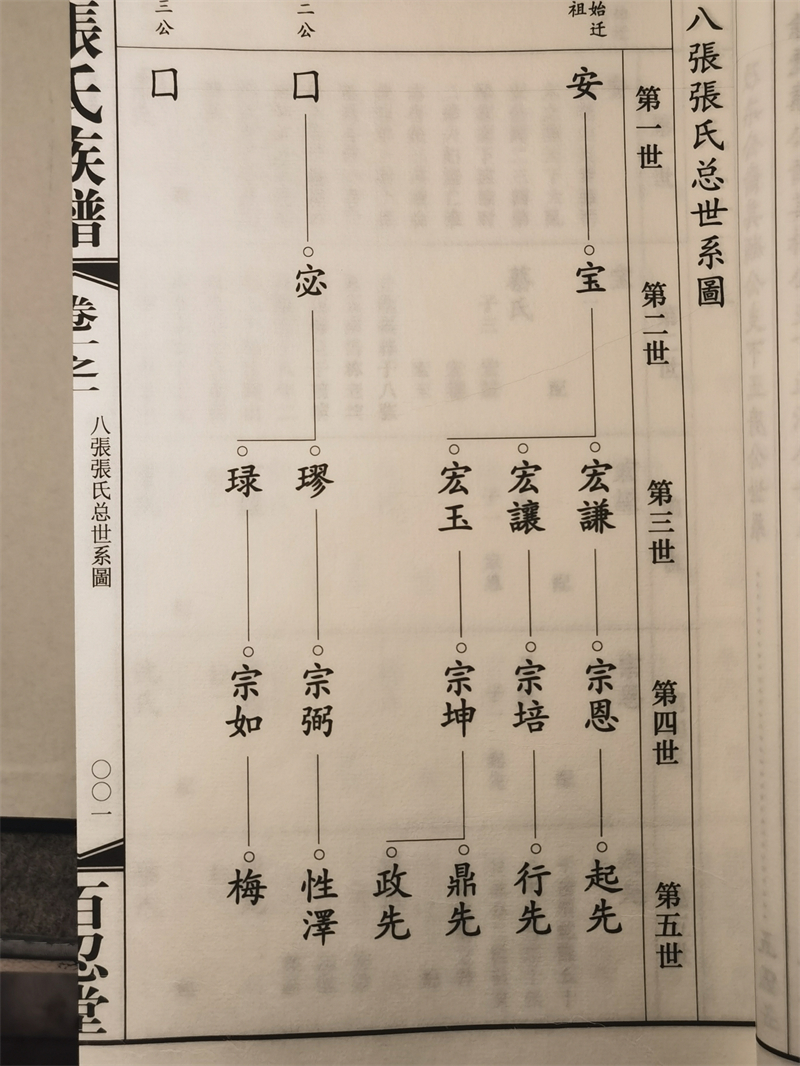 八張張氏总世系圖
第一世
第二世
第三世
第四世
第五世
始迁祖
安
宝
宏謙
宏讓
宏玉
宗恩
宗培
宗坤
起先
行先
鼎先
政先
二公
口
宓
璆
琭
宗弼
宗如
性澤
梅
三公
口
張氏族譜
卷一之一
八張張氏总世系圖
〇〇一
百忍堂